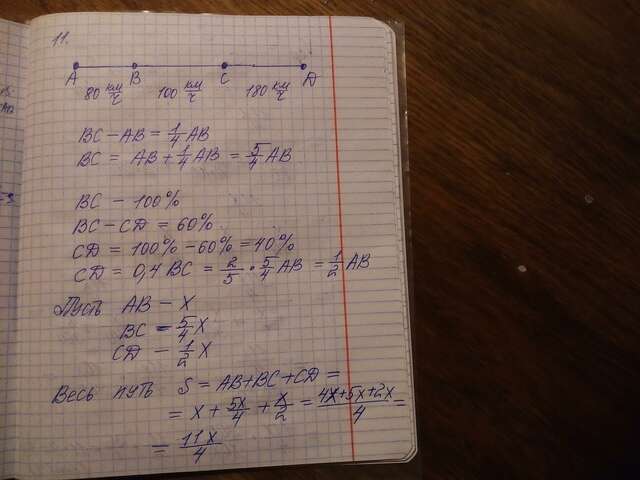 11.
A B C D
80 км/ч 100 км/ч 180 км/ч
BC - AB = 1/4 AB
BC = AB + 1/4 AB = 5/4 AB
BC - 100%
BC - CD = 60%
CD = 100% - 60% = 40%
CD = 0,4 BC = 2/5 · 5/4 AB = 1/2 AB
Пусть AB - X
BC = 5/4 X
CD - 1/2 X
Весь путь S = AB + BC + CD =
= X + 5X/4 + X/2 = 4X+5X+2X/4 =
= 11X/4